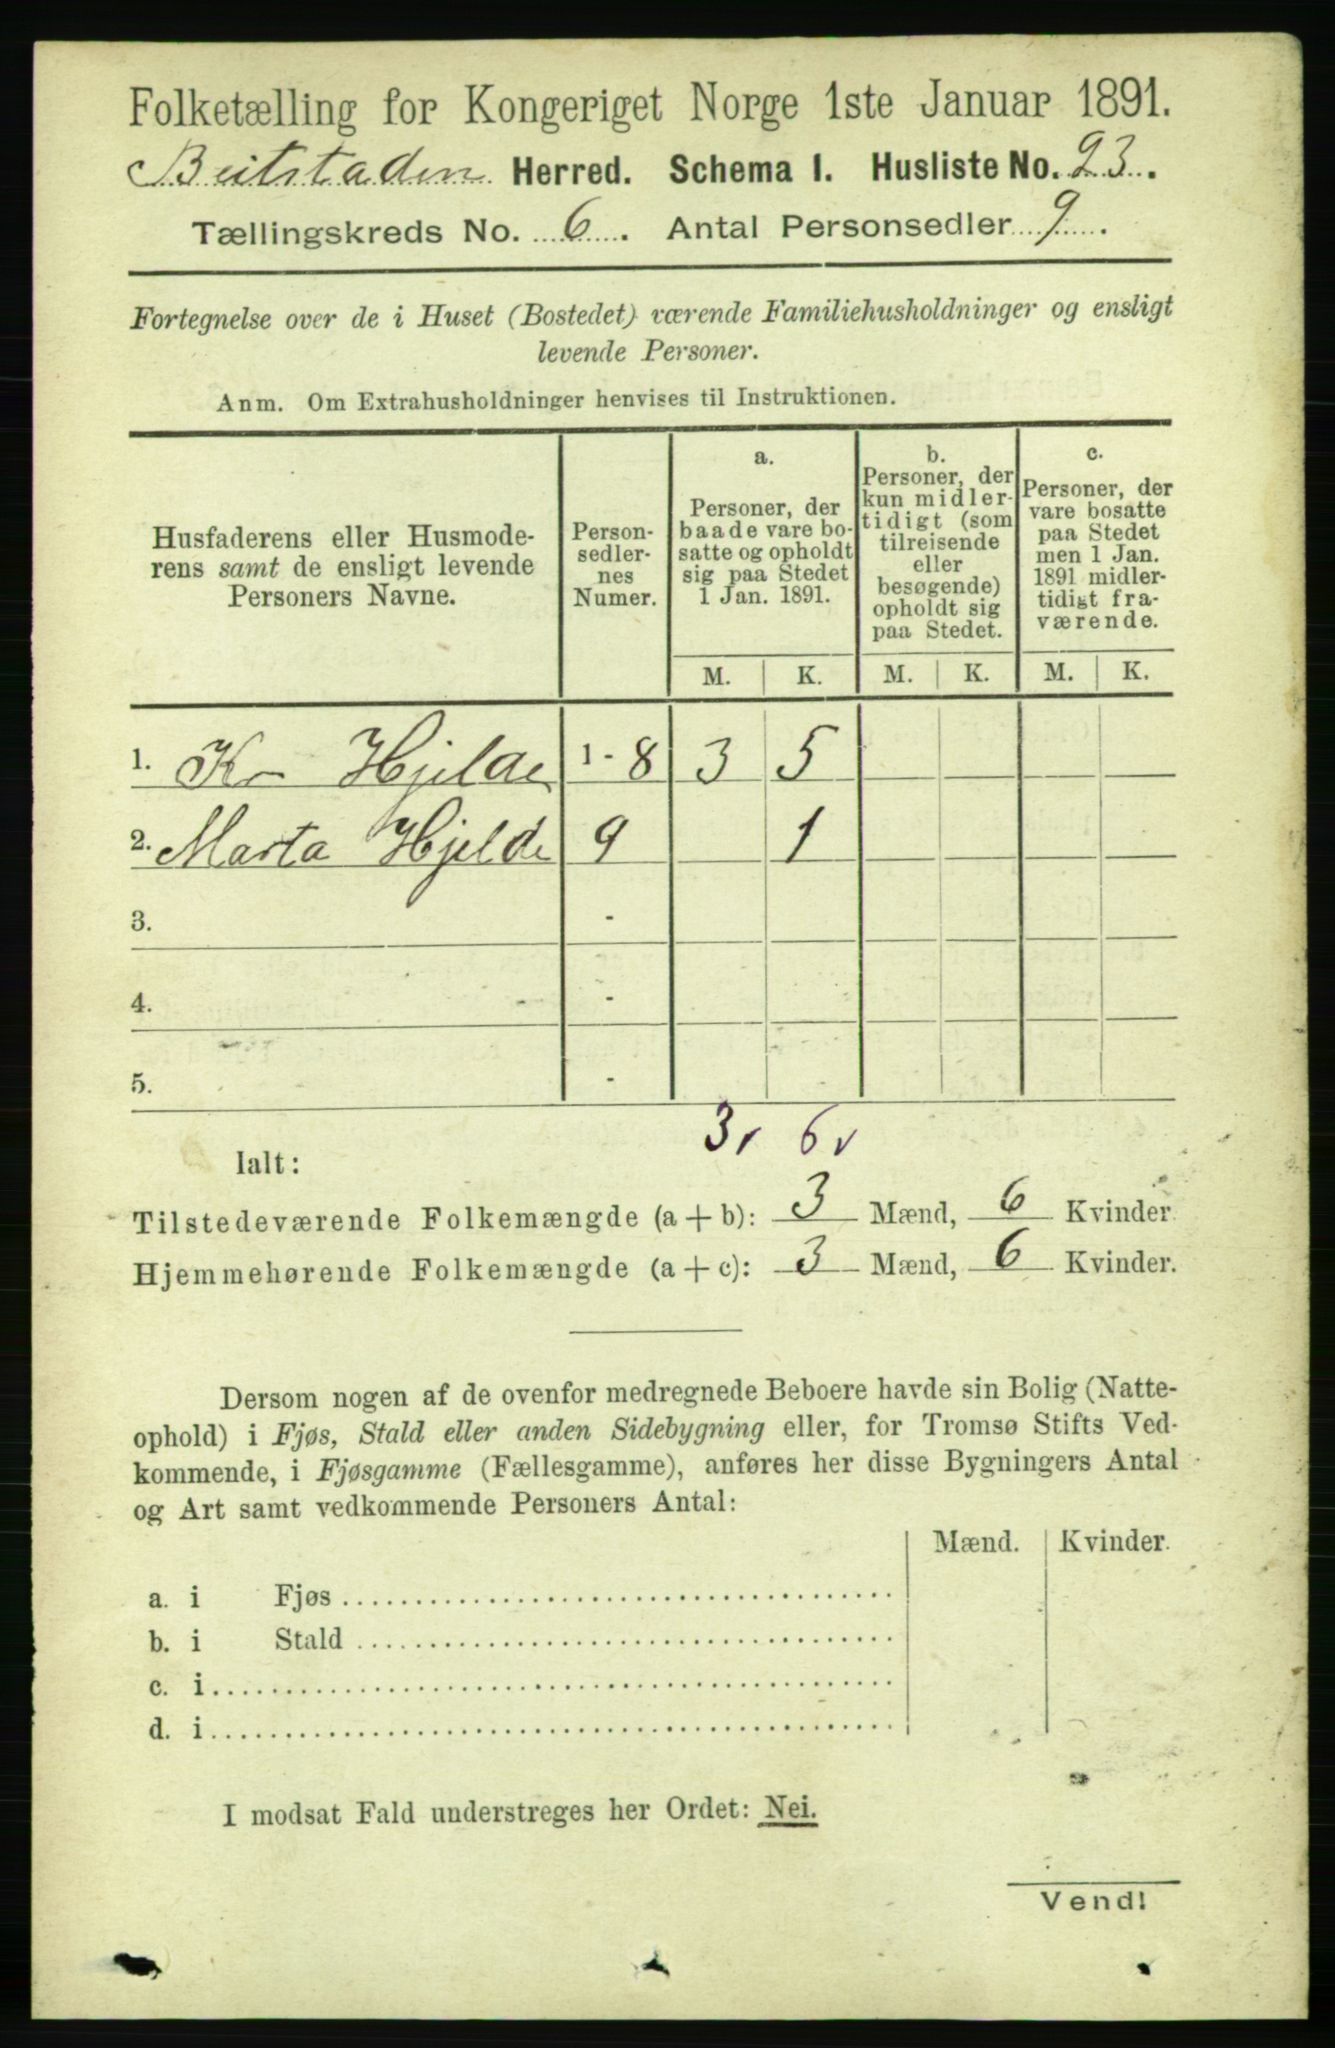 Folketælling for Kongeriget Norge 1ste Januar 1891.
Beitstaden Herred. Schema I. Husliste No. 23.
Tællingskreds No. 6. Antal Personsedler 9.
Fortegnelse over de i Huset (Bostedet) værende Familiehusholdninger og ensligt
levende Personer.
Anm. Om Extrahusholdninger henvises til Instruktionen.
Husfaderens eller Husmode-
rens samt de ensligt levende
Personers Navne.
Person-
sedler-
nes
Numer.
a.
Personer, der
baade vare bo-
satte og opholdt
sig paa Stedet
1 Jan. 1891.
b.
Personer, der
kun midler-
tidigt (som
tilreisende
eller
besøgende)
opholdt sig
paa Stedet.
c.
Personer, der
vare bosatte
paa Stedet
men 1 Jan.
1891 midler-
tidigt fra-
værende.
M. K. M. K. M. K.
1. Kr Hjelde 1-8 3 5
2. Marta Hjelde 9 1
3. -
4. -
5. -
3v 6v
Ialt:
Tilstedeværende Folkemængde (a + b): 3 Mænd, 6 Kvinder.
Hjemmehørende Folkemængde (a + c): 3 Mænd, 6 Kvinder.
Dersom nogen af de ovenfor medregnede Beboere havde sin Bolig (Natte-
ophold) i Fjøs, Stald eller anden Sidebygning eller, for Tromsø Stifts Ved-
kommende, i Fjøsgamme (Fællesgamme), anføres her disse Bygningers Antal
og Art samt vedkommende Personers Antal:
Mænd. Kvinder.
a. i Fjøs
b. i Stald
c. i
d. i
I modsat Fald understreges her Ordet: Nei.
Vend!